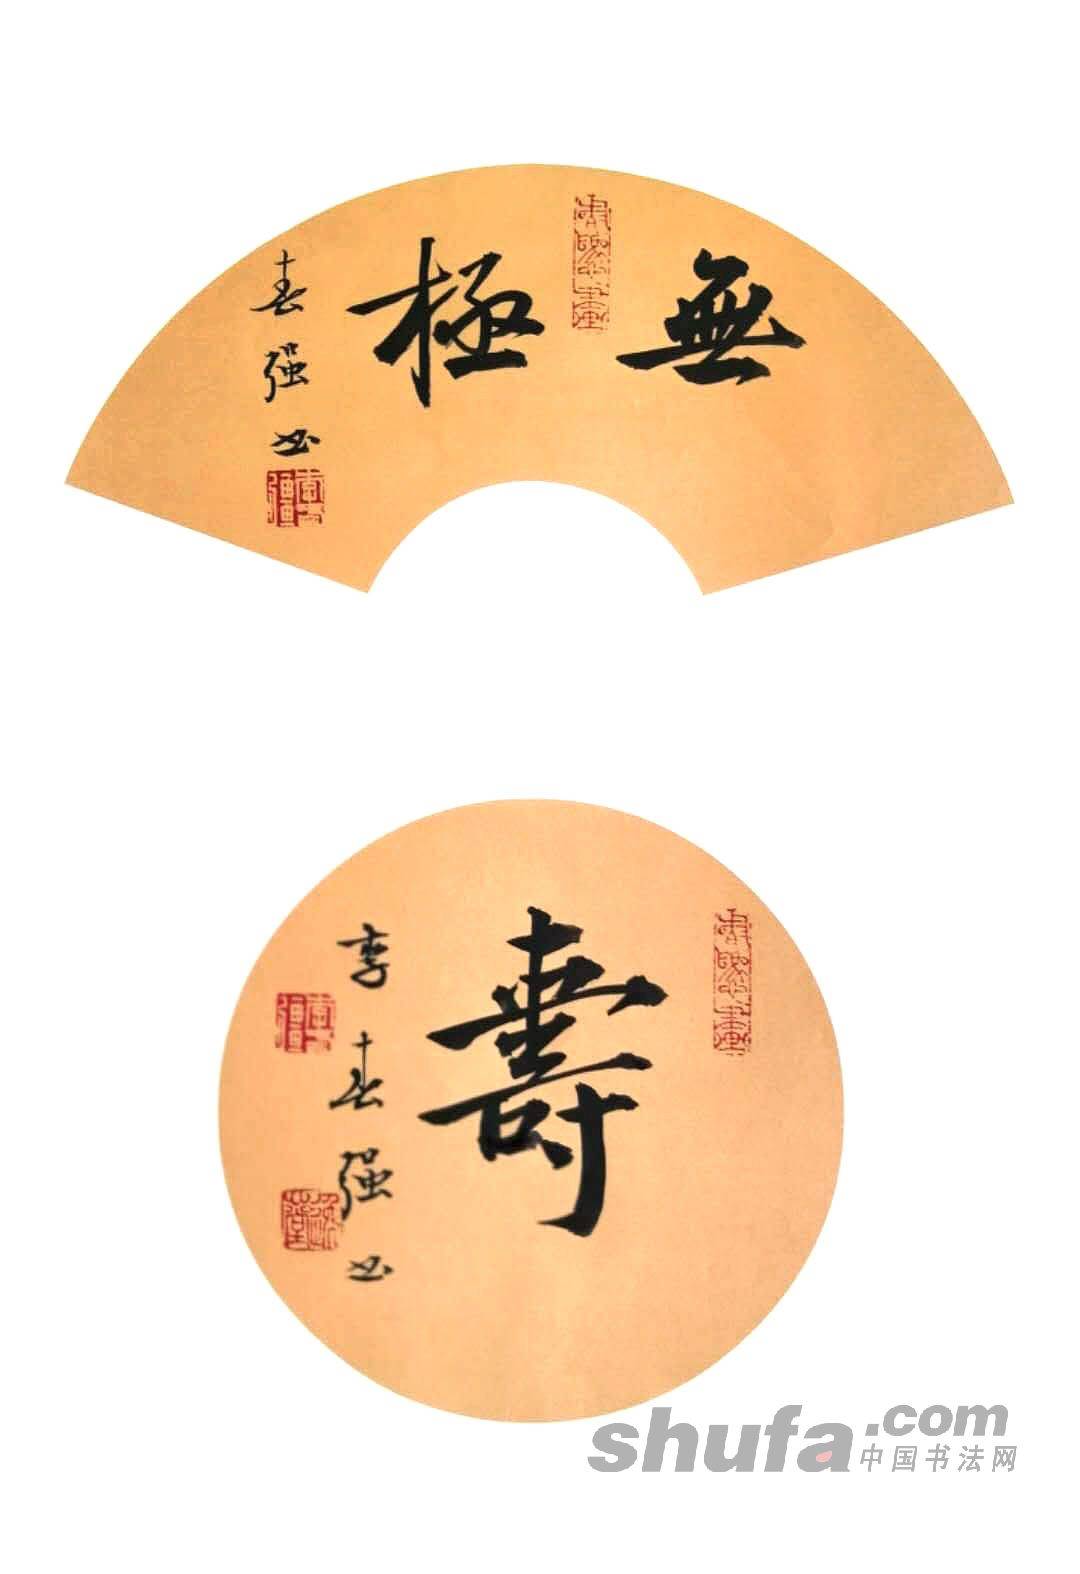 無極
春强书
壽
李春强书
shufa.com
中国书法网